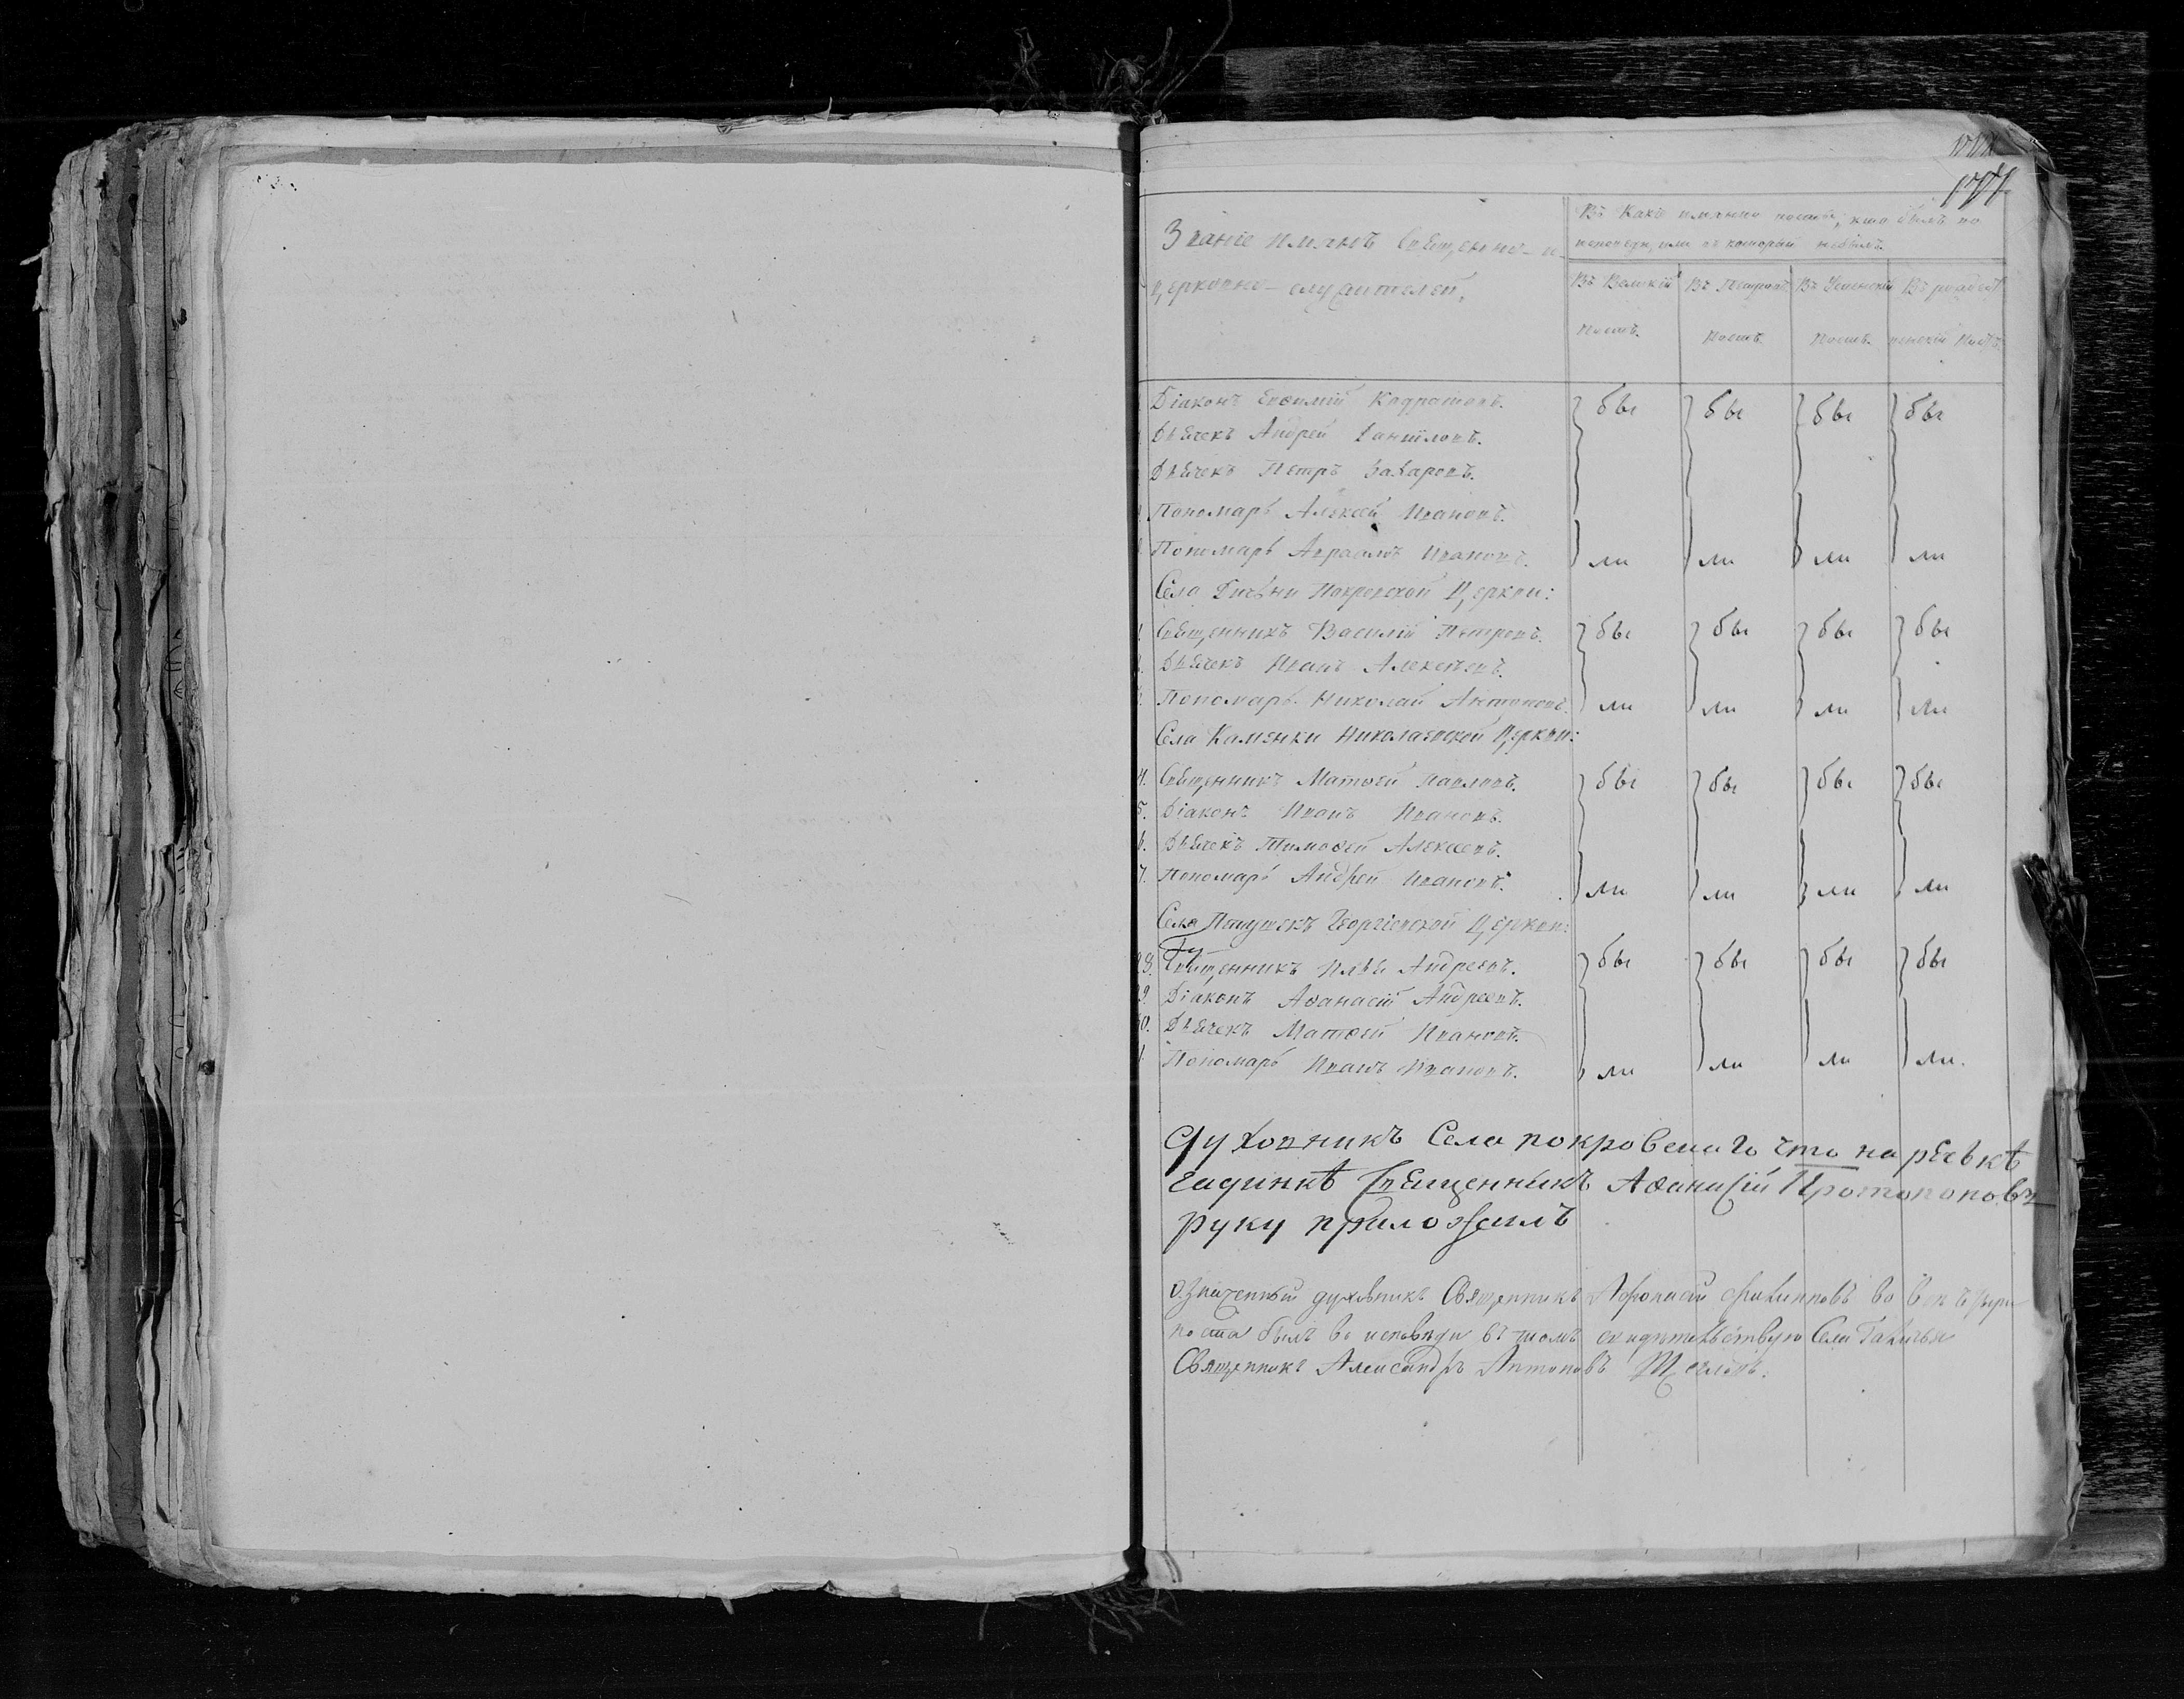 177
Званіе имянъ Священно- и
церковно-служителей.
Въ Какіе имянно посты, кто былъ на
исповеди, или въ который небылъ.
Въ Великій Въ Петровъ Въ Успенскій Въ рождест
постъ. постъ. постъ. венскій постъ.
Діаконъ Евѳимій Кодратовъ. бы бы бы бы
Дьячекъ Андрей Даниловъ.
Дьячекъ Петръ Захаровъ.
Пономарь Алексей Ивановъ.
Пономарь Авраамъ Ивановъ. ли ли ли ли
Села Покровской Церкви:
Священникъ Василій Петровъ. бы бы бы бы
Дьячекъ Иванъ Алексѣевъ.
Пономарь Николай Антоновъ. ли ли ли ли
Села Каменки Николаевской Церкви:
4. Священникъ Матѳей Павловъ. бы бы бы бы
5. Діаконъ Иванъ Ивановъ.
6. Дьячекъ Тимоѳей Алексеевъ.
7. Пономарь Андрей Ивановъ. ли ли ли ли
Села Петушекъ Георгіевской Церкви:
8. Священникъ Илья Андреевъ. бы бы бы бы
9. Діаконъ Аѳанасій Андреевъ.
0. Дьячекъ Матѳей Ивановъ.
Пономарь Иванъ Ивановъ. ли ли ли ли.
Духовникъ Села покровскаго что на рѣчькѣ
гадинкѣ Священникъ Аѳанасій Протопоповъ
руку приложилъ
Означенный духовникъ Священникъ Афонасій Филипповъ во все
поста былъ во исповѣди въ томъ свидѣтельствую Села Галичьи
Священникъ Александръ Антоновъ Щегловъ.